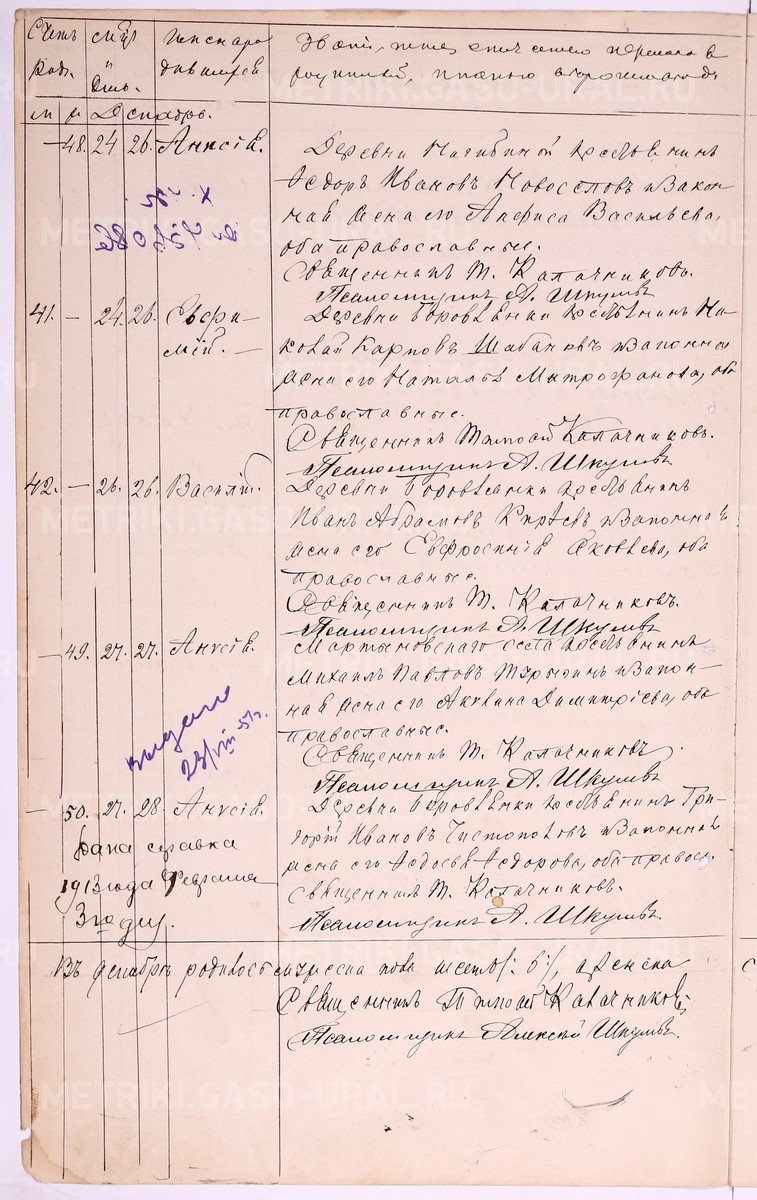 Счетъ род.
мѣс. и день.
Имена родившихся
Званіе, имя, отчество и
родителей, и какого вѣроисповѣд.
м ж Декабрь.
48. 24 26. Анисія. Деревни Нагибиной крестьянинъ
Ѳедоръ Ивановъ Новоселовъ и закон
ная жена его Васильева,
оба православные.
Священникъ Т. Калачниковъ.
Псаломщикъ А. Шкулевъ
41. — 24. 26. Евфи- Деревни Боровлянки крестьянинъ Ни-
мій. — колай Карповъ Шабановъ и законная
жена его Наталья Митрофанова, оба
православные.
Священникъ Тимофей Калачниковъ.
Псаломщикъ А. Шкулевъ
42. — 26. 26. Василій. Деревни Боровлянки крестьянинъ
Иванъ Абрамовъ Кирѣевъ и законная
жена его Евфросинія Яковлева, оба
православные.
Священникъ Т. Калачниковъ.
Псаломщикъ А. Шкулевъ
— 49. 27. 27. Анисія. Мартыновскаго села крестьянинъ
Михаилъ Павловъ и закон-
ная жена его Акулина Димитріева, оба
православные.
выдано
23/VIII-51г.
Священникъ Т. Калачниковъ.
Псаломщикъ А. Шкулевъ
— 50. 27. 28. Анисія. Деревни Боровлянки крестьянинъ Гри-
горій Ивановъ Чистополовъ и законная
жена его Ѳедосья Ѳедорова, оба правосл.
Священникъ Т. Калачниковъ.
Псаломщикъ А. Шкулевъ
Дана справка
1913 года Февраля
3го дня.
Въ декабрѣ родилось мужеска пола шесть /: 6 :/, а женска
Священникъ Тимофей Калачниковъ,
Псаломщикъ Алексѣй Шкулевъ.
METRIKI.GASO-URAL.RU